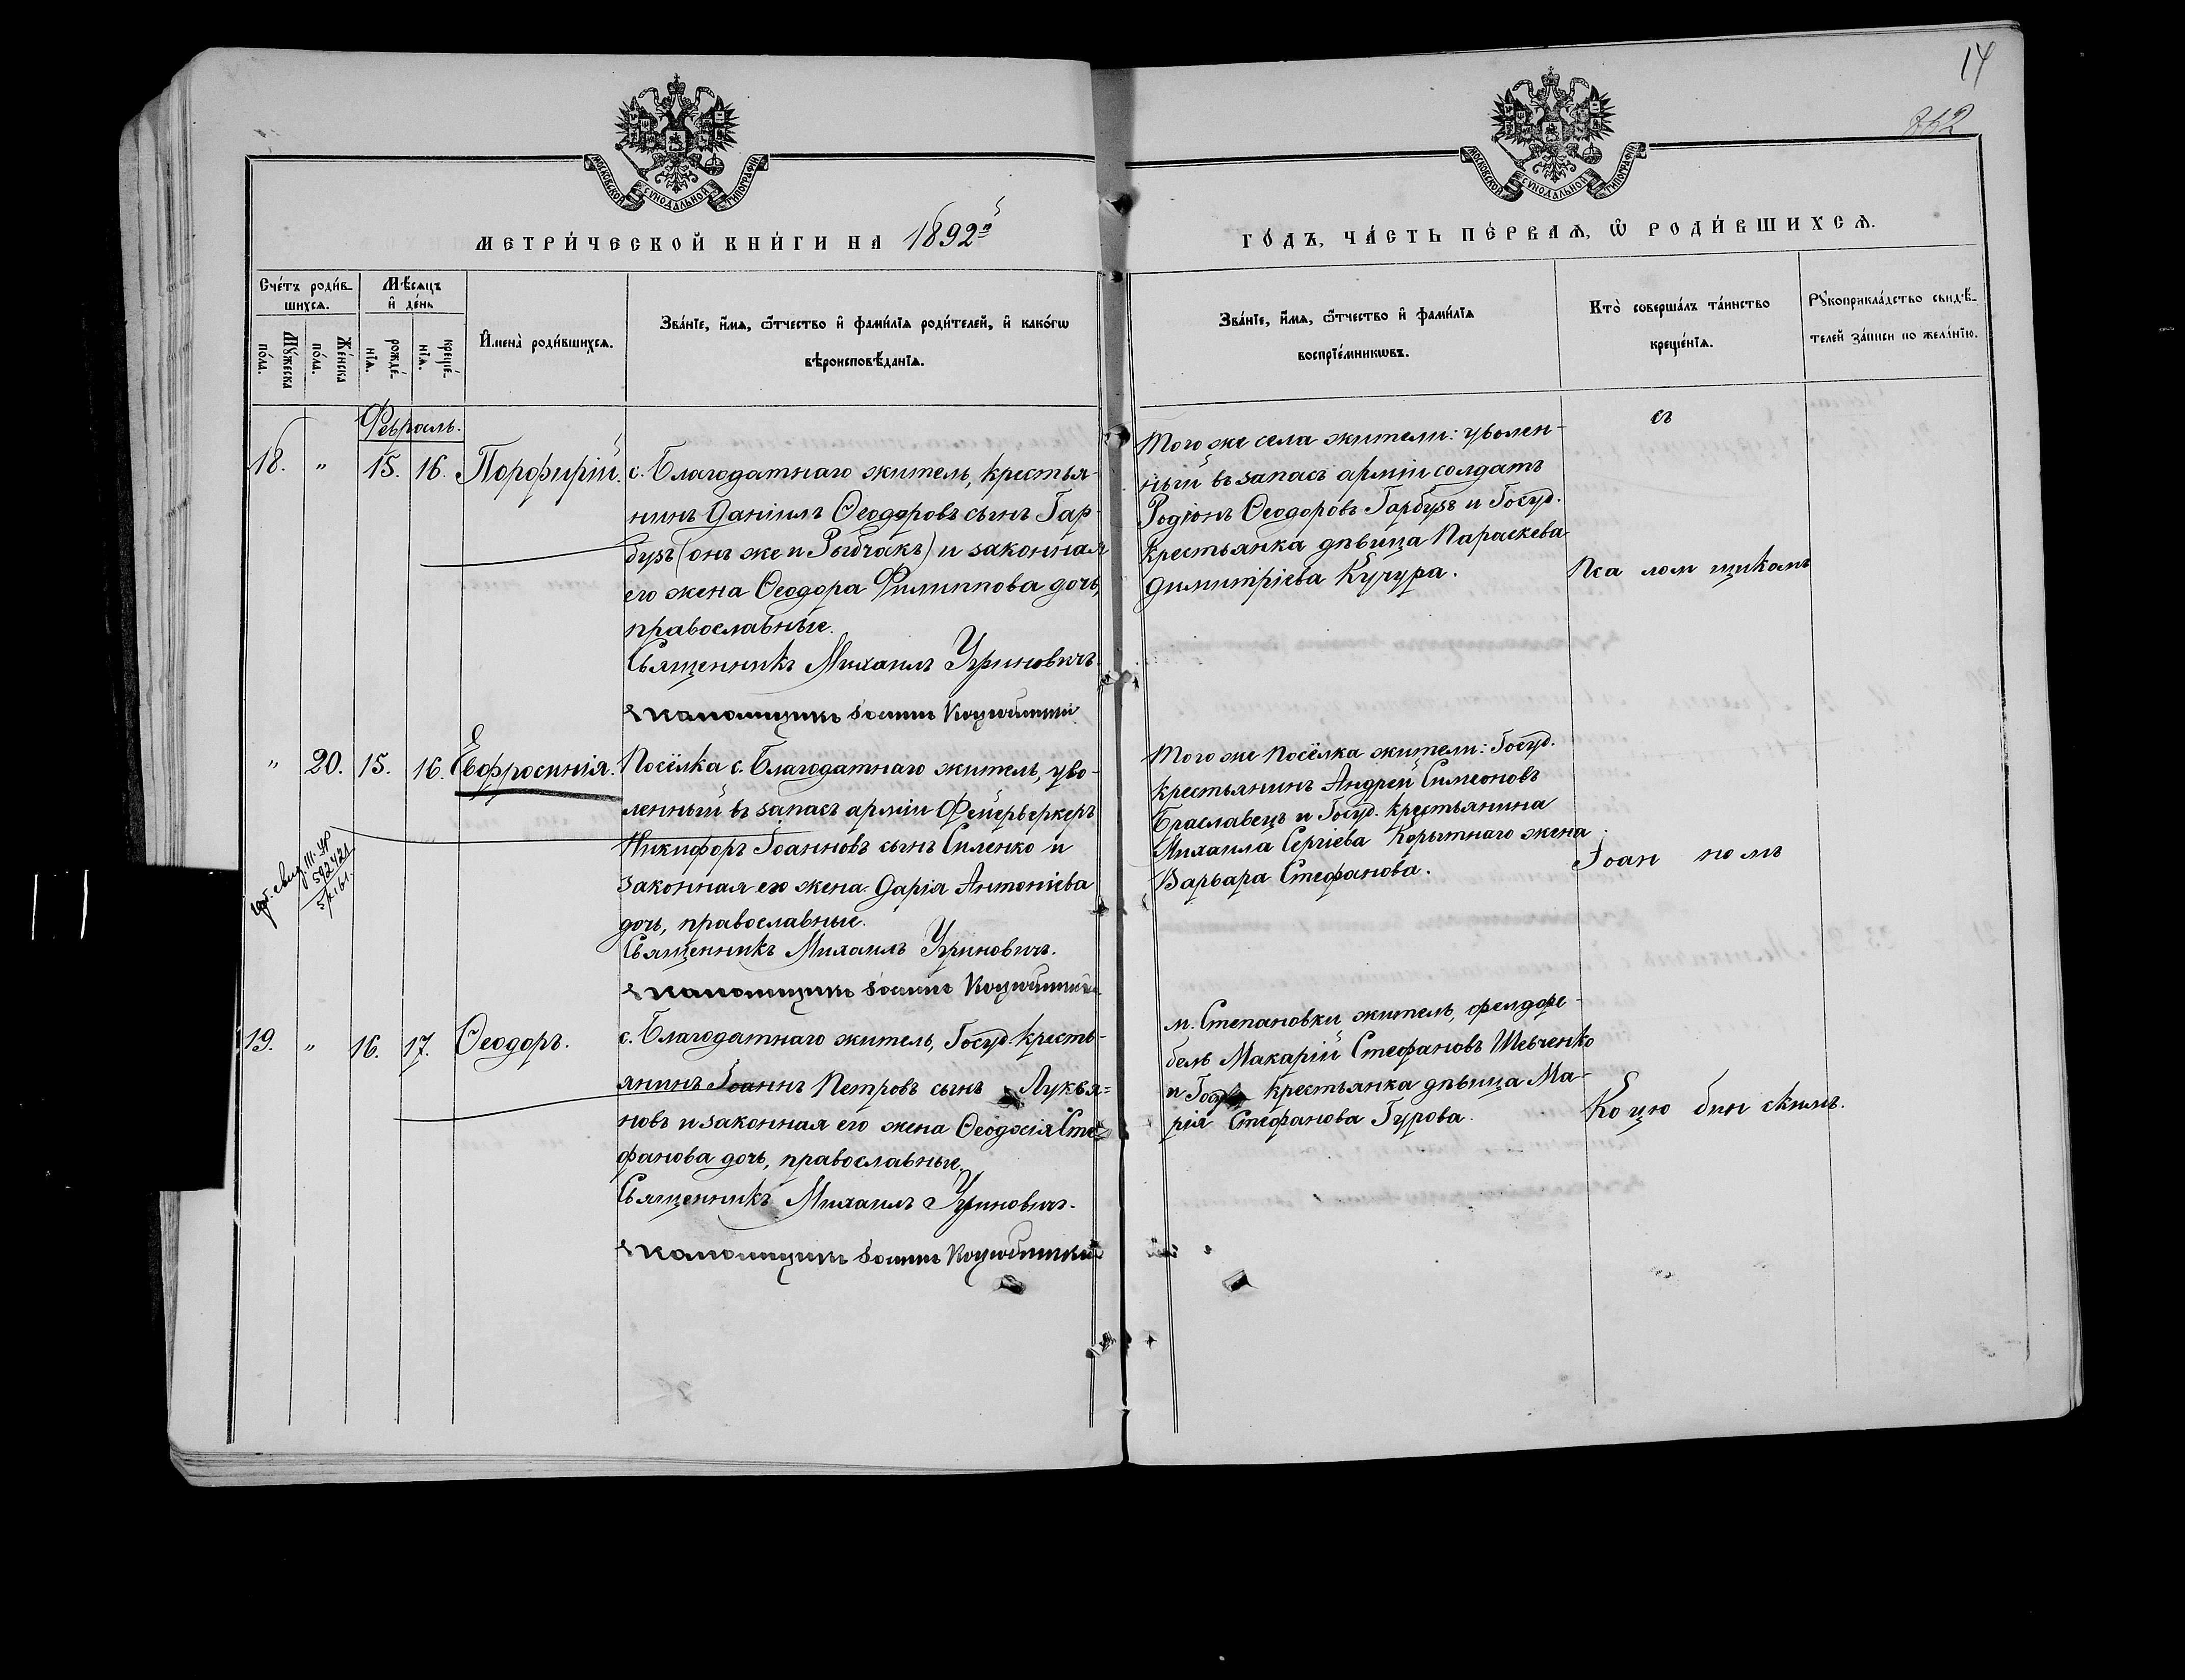 14
762
МОСКОВСКОЙ СѴНОДАЛЬНОЙ ТИПОГРАФІИ
МОСКОВСКОЙ СѴНОДАЛЬНОЙ ТИПОГРАФІИ
МЕТРИ́ЧЕСКОЙ КНИ́ГИ НА 1892й
ГО́ДЪ, ЧА́СТЬ ПЕ́РВАѦ, Ѡ҆ РОДИ́ВШИХСѦ.
Сче́тъ роди́в-
шихсѧ.
Мѣ́сѧцъ
и҆ де́нь
Мꙋ́жеска
по́ла.
Же́нска
по́ла.
рожде́-
нїѧ.
креще́-
нїѧ.
И҆мена̀ роди́вшихсѧ.
Зва́нїе, и҆́мѧ, ѻ҆́тчество и҆ фами́лїѧ роди́телей, и҆ како́гѡ
вѣроисповѣ́данїѧ.
Зва́нїе, и҆́мѧ, ѻ҆́тчество и҆ фами́лїѧ
воспрїе́мникѡвъ.
Кто̀ соверша́лъ та́инство
креще́нїѧ.
Рꙋкоприкла́дство свидѣ́-
телей за́писи по жела́нїю.
Февраль.
18. " 15. 16. Порфирій.
с. Благодатнаго житель, крестья-
нинъ Даніилъ Ѳеодоровъ сынъ Гар-
бузъ (онъ же и Рыбчакъ) и законная
его жена Ѳеодора Филиппова дочь,
православные.
Священникъ Михаилъ Угриновичъ.
Псаломщикъ Іоаннъ Коцюбинскій
Того же села жители: уволен-
ный въ запасъ арміи солдатъ
Родіонъ Ѳеодоровъ Гарбузъ и Госуд.
крестьянка дѣвица Параскева
Димитріева Кучура.
съ
Псаломщикомъ
" 20. 15. 16. Евфросинія.
Посёлка с. Благодатнаго житель, уво-
ленный въ запасъ арміи Фейерверкеръ
Никифоръ Іоанновъ сынъ Силенко и
законная его жена Дарія Антоніева
дочь, православные.
Священникъ Михаилъ Угриновичъ.
Псаломщикъ Іоаннъ Коцюбинскій
592421
Того же посёлка жители: Госуд.
крестьянинъ Андрей Симеоновъ
Браславецъ и Госуд. крестьянина
Михаила Сергіева Корытнаго жена
Варвара Стефанова.
Іоанномъ
19. " 16. 17. Ѳеодоръ.
с. Благодатнаго житель, Госуд. кресть-
янинъ Іоаннъ Петровъ сынъ Лукья=
новъ и законная его жена Ѳеодосія Сте-
фанова дочь, православные.
Священникъ Михаилъ Угриновичъ.
Псаломщикъ Іоаннъ Коцюбинскій
м. Степановки житель, фелдфе-
бель Макарій Стефановъ Шевченко
и Госуд. крестьянка дѣвица Ма-
рія Стефанова Гурова.
Коцюбинскимъ.